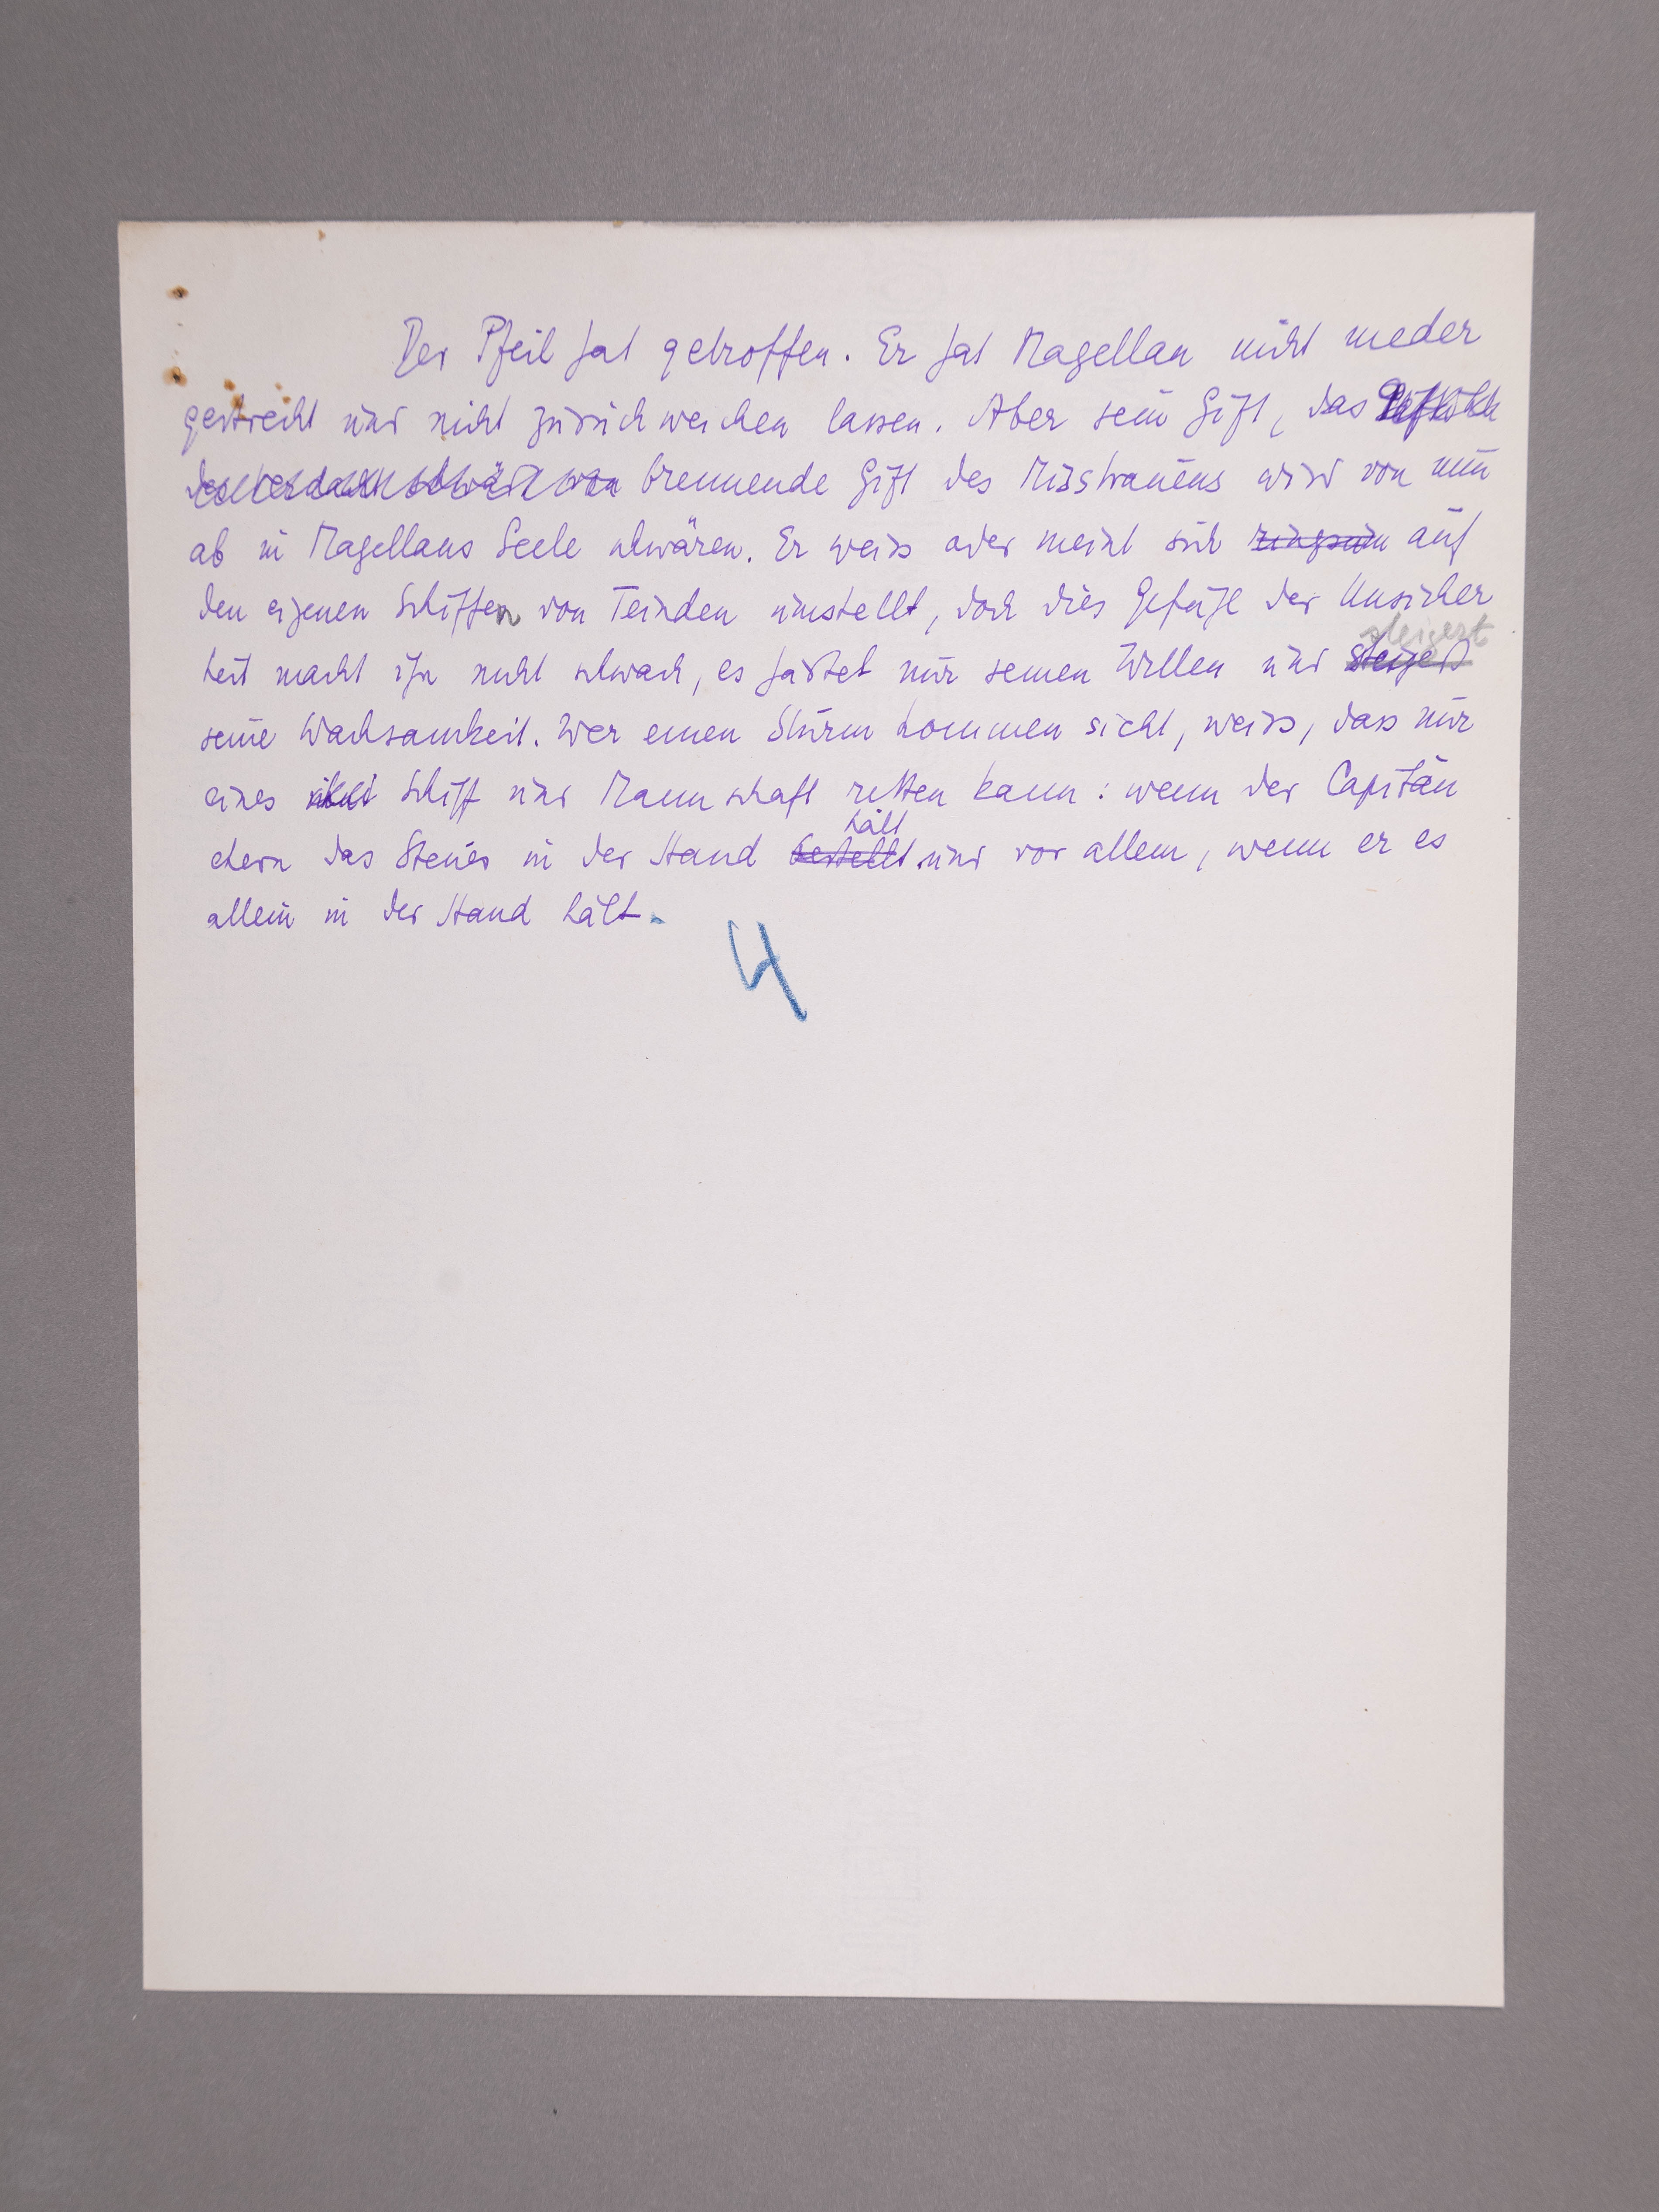 Der Pfeil hat getroffen. Er hat Magellan nicht nieder
gestreckt und nicht zurückweichen lassen. Aber sein Gift, das
brennende Gift des Misstrauens wird von nun
ab in Magellans Seele schwären. Er weiss oder meint sich ringsum auf
den eigenen Schiffen von Feinden umstellt, doch dies Gefühl der Unsicher
steigert
heit macht ihn nicht schwach, es härtet nur seinen Willen und steigert
seine Wachsamkeit. Wer einen Sturm kommen sieht, weiss, dass nur
eines Schiff und Mannschaft retten kann: wenn der Capitän
hält
ehern das Steuer in der Hand und vor allem, wenn er es
allein in der Hand hält.
4